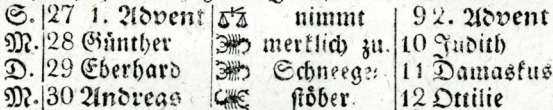 S. 27 1. Advent nimmt 9 2. Advent
M. 28 Günther merklich zu. 10 Judith
D. 29 Eberhard Schneege⸗ 11 Damaskus
M. 30 Andreas stöber. 12 Ottilie